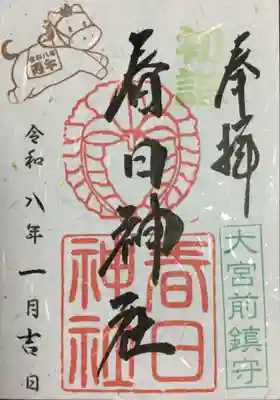 奉拝
初詣
大宮前鎮守
春日神社
春日
神社
令和八年一月吉日
令和八年
丙午